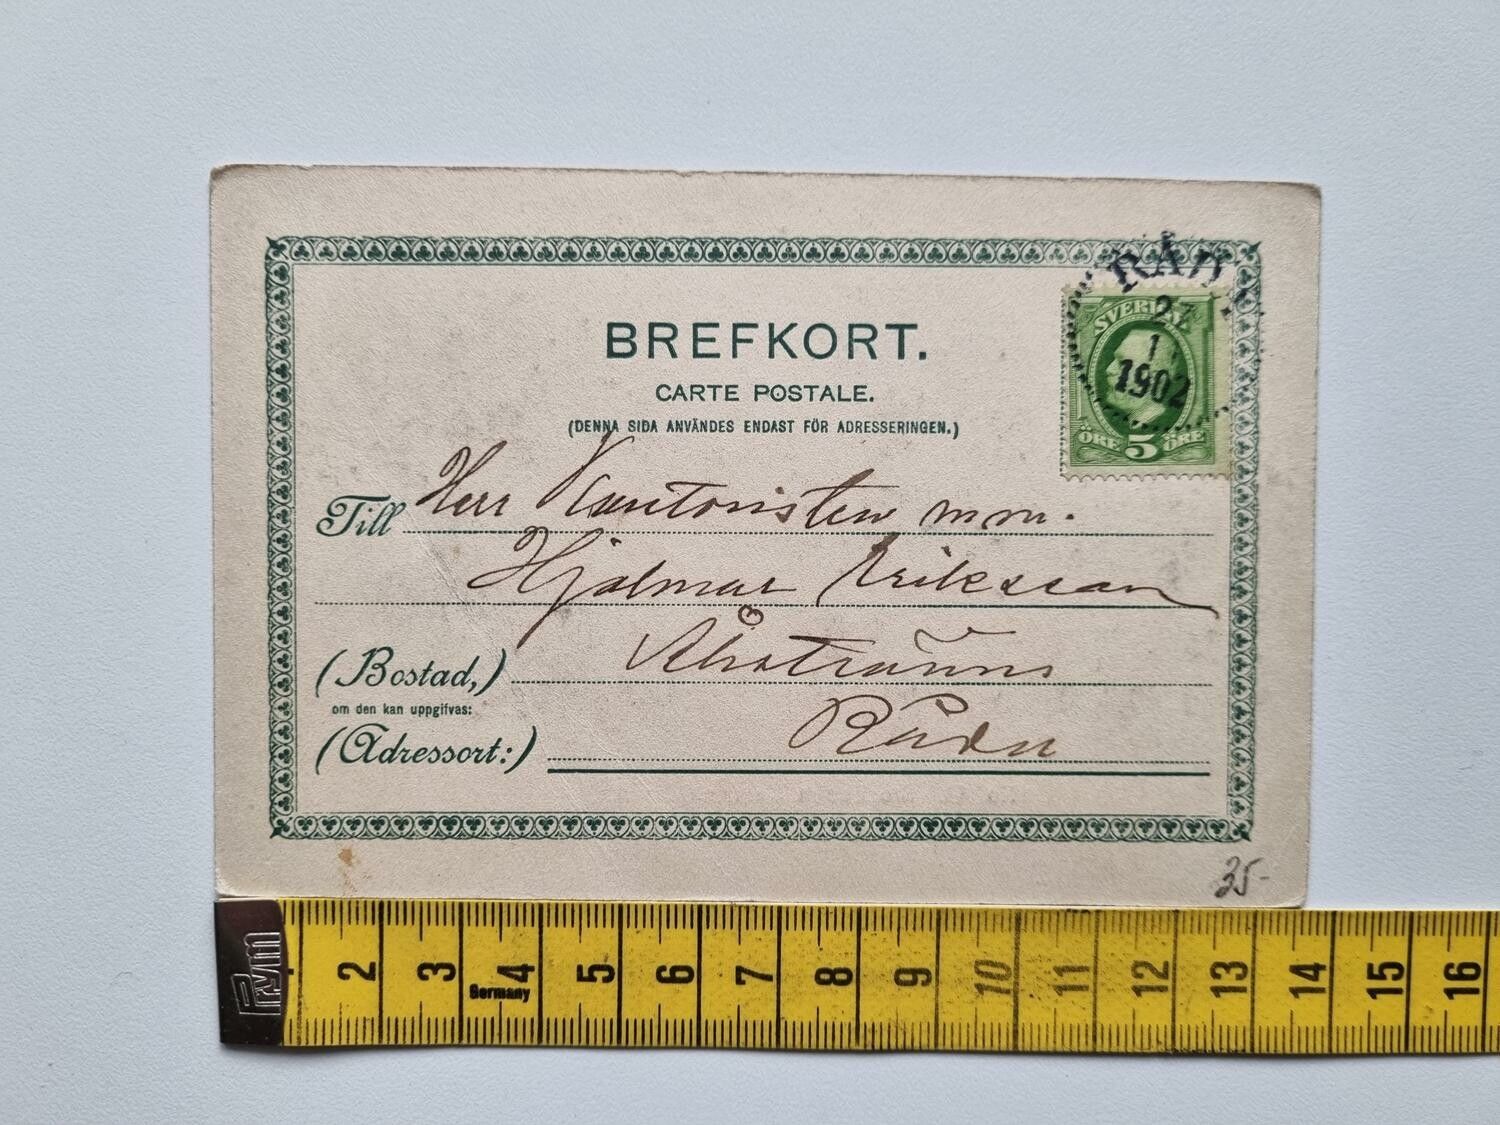 BREFKORT.
CARTE POSTALE.
(DENNA SIDA ANVÄNDES ENDAST FÖR ADRESSERINGEN.)
RÅD
27
1
1902
SVERIGE
ÖRE 5 ÖRE
Till Herr Kontoristen m.m.
Hjalmar Eriksson
(Bostad,)
om den kan uppgifvas:
(Adressort:) Råda
35-
Prym
2 3 4 5 6 7 8 9 10 11 12 13 14 15 16
Germany